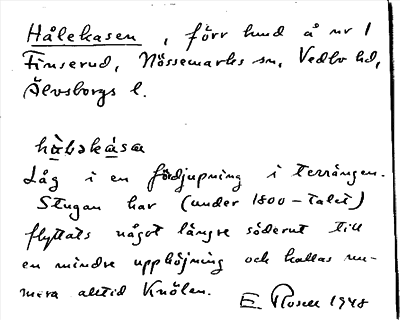 Hålekasen, förr lund å nr 1
Finserud, Nössemarks sn, Vedbo hd,
Älvsborgs l.
hò̀ləkàsa
Låg i en fördjupning i terrängen.
Stugan har (under 1800-talet)
flyttats något längre söderut till
en mindre upphöjning och kallas nu-
mera alltid Knölen.
E. Rosell 1948